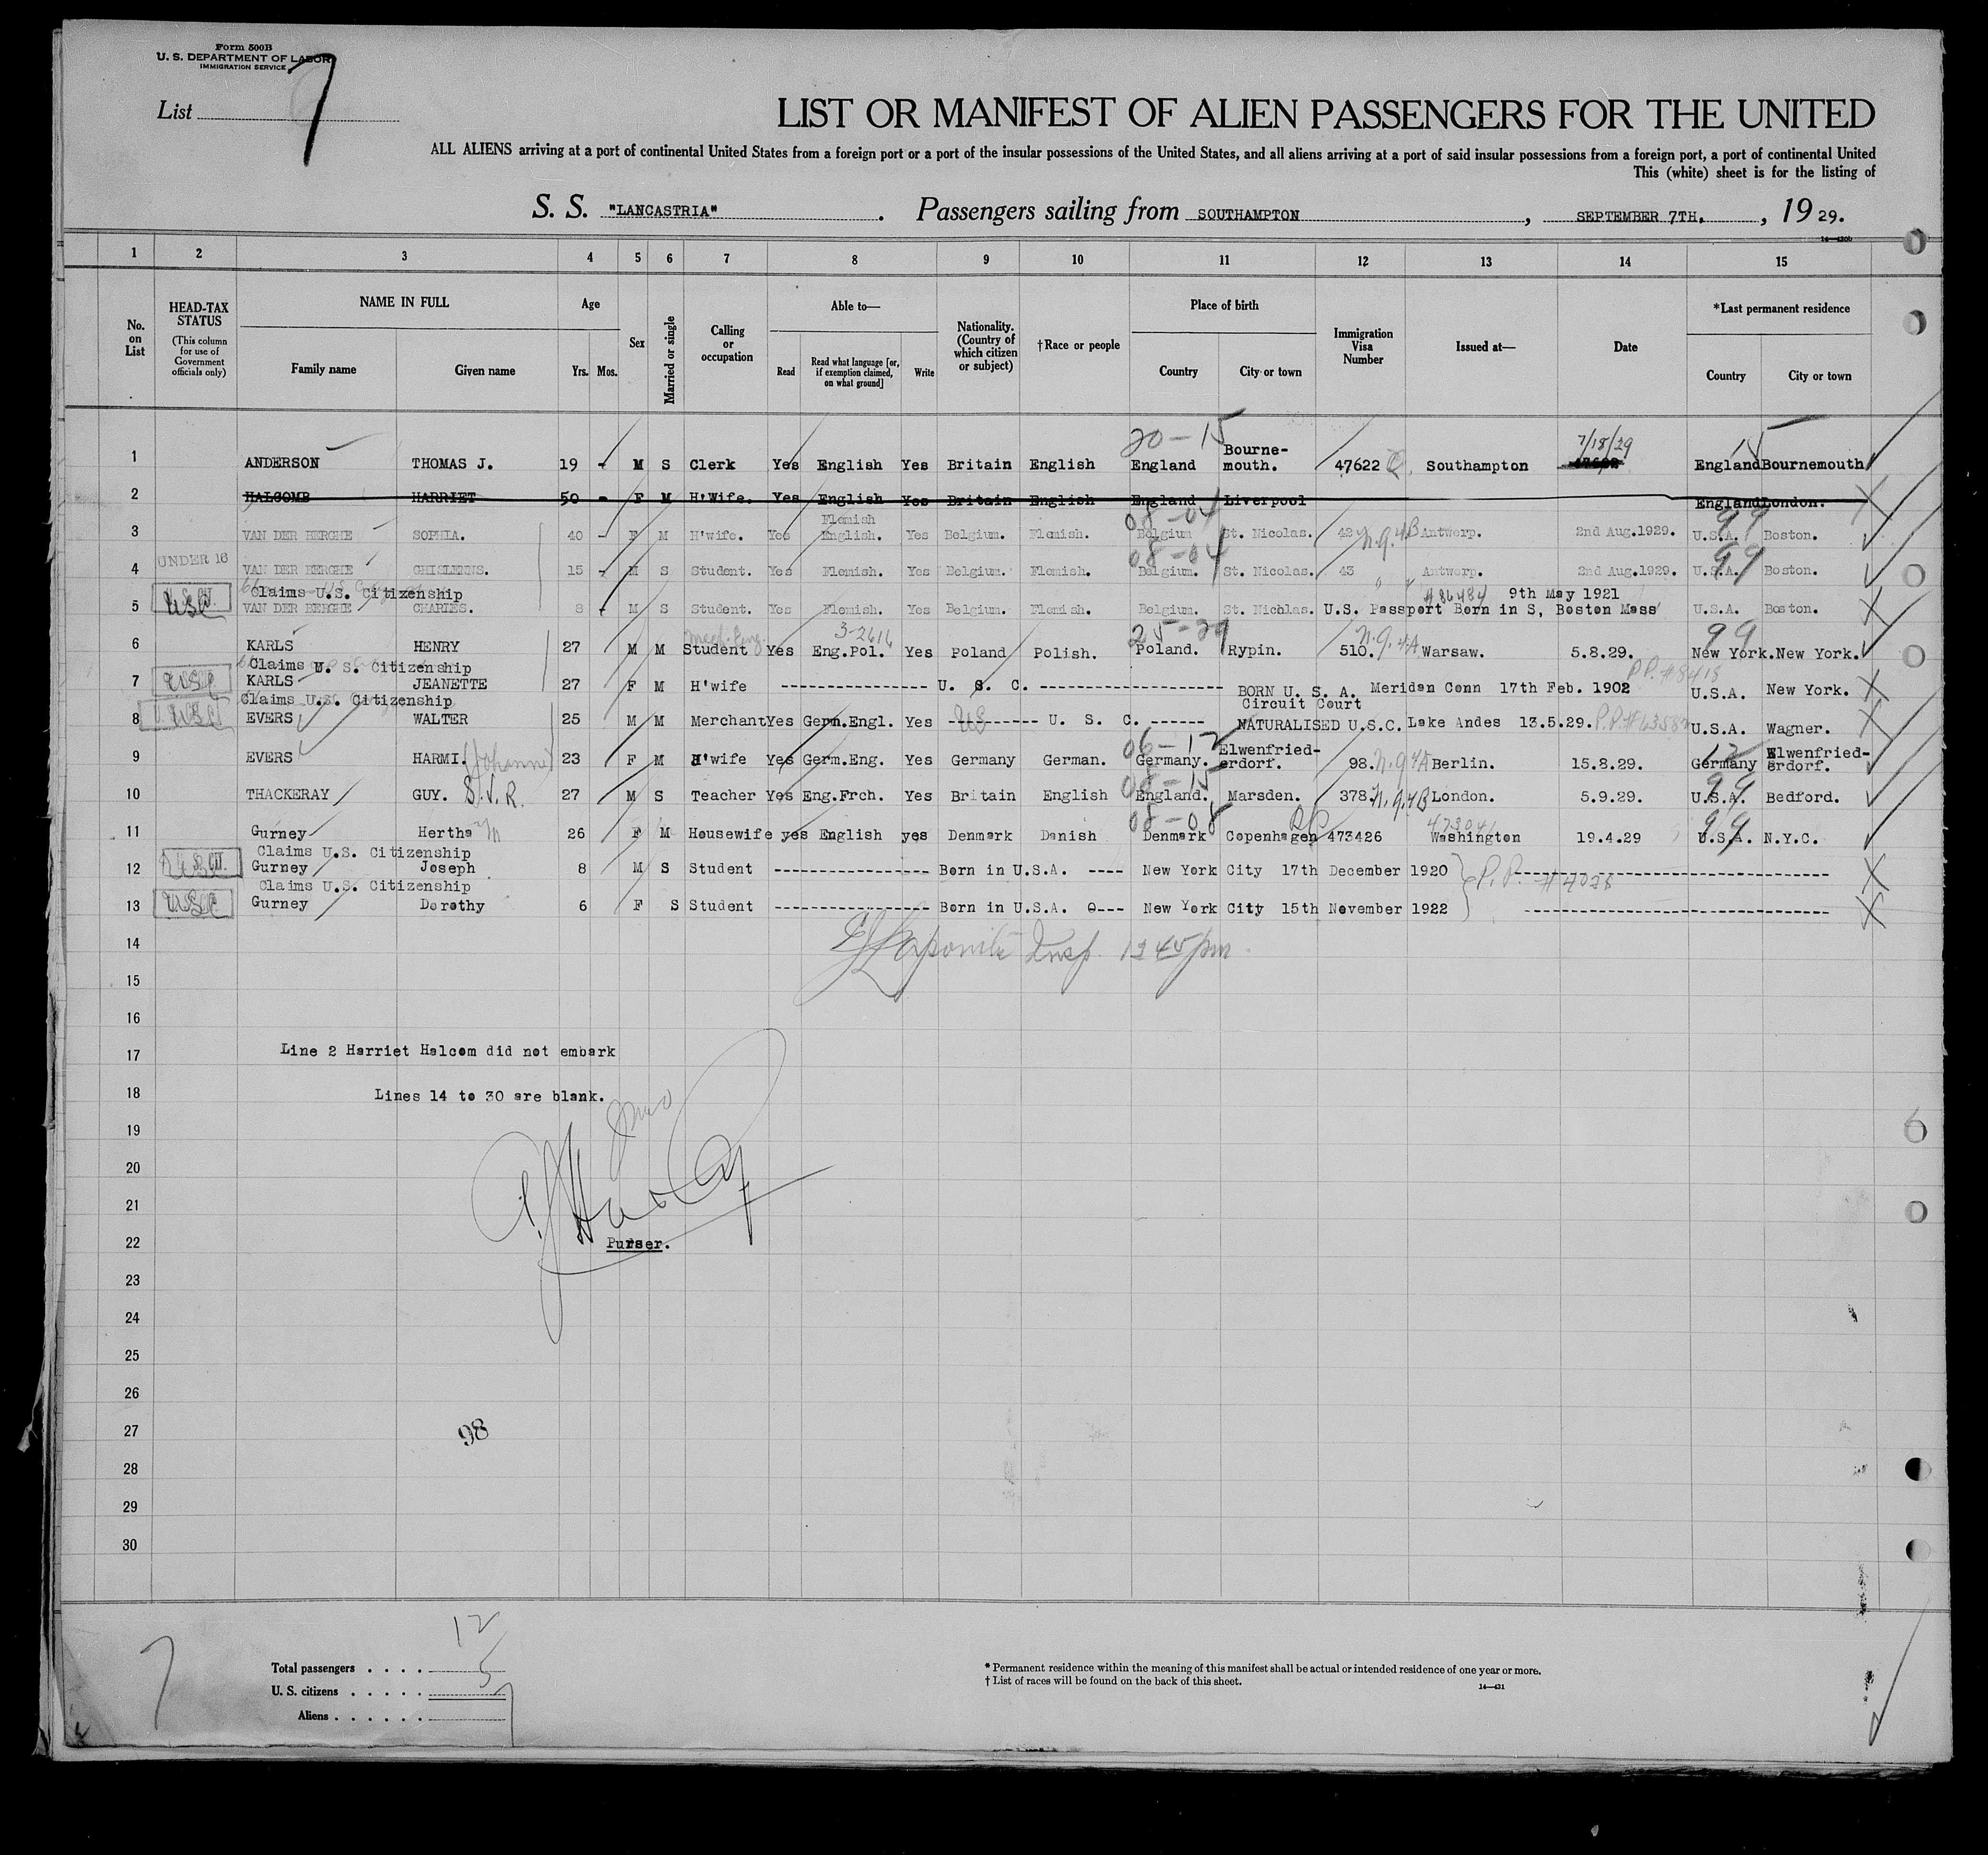 Form 500B
U. S. DEPARTMENT OF LABOR
IMMIGRATION SERVICE
List 7
LIST OR MANIFEST OF ALIEN PASSENGERS FOR THE UNITED
ALL ALIENS arriving at a port of continental United States from a foreign port or a port of the insular possessions of the United States, and all aliens arriving at a port of said insular possessions from a foreign port, a port of continental United
This (white) sheet is for the listing of
S. S. "LANCASTRIA" . Passengers sailing from SOUTHAMPTON , SEPTEMBER 7TH. , 19 29.
1 2 3 4 5 6 7 8 9 10 11 12 13 14 15
No. on List
HEAD-TAX STATUS
(This column for use of Government officials only)
NAME IN FULL
Family name Given name
Age
Yrs. Mos.
Sex
Married or single
Calling or occupation
Able to—
Read Read what language [or, if exemption claimed, on what ground] Write
Nationality. (Country of which citizen or subject)
†Race or people
Place of birth
Country City or town
Immigration Visa Number
Issued at—
Date
*Last permanent residence
Country City or town
20-15 7/18/29 15
1 ANDERSON THOMAS J. 19 - M S Clerk Yes English Yes Britain English England Bourne-mouth. 47622 Southampton England Bournemouth
2 HALCOMB HARRIET 50 - F M H'Wife. Yes English Yes Britain English England Liverpool England London.
08-04 99
3 VAN DER BERGHE SOPHIA. 40 - F M H'wife. Yes Flemish English. Yes Belgium. Flemish. Belgium St. Nicolas. 42 n.q.4B Antwerp. 2nd Aug.1929. U.S.A. Boston.
UNDER 16 08-04 99
4 VAN DER BERGHE GHISLENNS. 15 - M S Student. Yes Flemish. Yes Belgium. Flemish. Belgium. St. Nicolas. 43 " " Antwerp. 2nd Aug.1929. U.S.A. Boston.
Claims U.S. Citizenship #86484 9th May 1921
5 USC VAN DER BERGHE CHARLES. 8 - M S Student. Yes Flemish. Yes Belgium. Flemish. Belgium. St. Nichlas. U.S. Passport Born in S, Boston Mass U.S.A. Boston.
3-2616 25-29 99
6 KARLS HENRY 27 M M Student Yes Eng.Pol. Yes Poland Polish. Poland. Rypin. 510. n.q.4A Warsaw. 5.8.29. New York. New York.
Claims U. S. Citizenship P.P.#8418
7 USC KARLS JEANETTE 27 F M H'wife ---------------- U. S. C. -------------------- BORN U. S. A. Meriden Conn 17th Feb. 1902 U.S.A. New York.
Claims U.S. Citizenship Circuit Court
8 USC EVERS WALTER 25 M M Merchant Yes Germ.Engl. Yes --------- U. S. C. ------ NATURALISED U.S.C. Lake Andes 13.5.29. U.S.A. Wagner.
06-12 12
9 EVERS HARMI. 23 F M H'wife Yes Germ.Eng. Yes Germany German. Germany. Elwenfried-erdorf. 98. n.q.4A Berlin. 15.8.29. Germany Elwenfried-erdorf.
08-15 99
10 THACKERAY GUY. S.V.R. 27 M S Teacher Yes Eng.Frch. Yes Britain English England. Marsden. 378. n.q.4B London. 5.9.29. U.S.A. Bedford.
08-08 473041 99
11 Gurney Hertha 26 F M Housewife yes English yes Denmark Danish Denmark Copenhagen 473426 Washington 19.4.29 U.S.A. N.Y.C.
Claims U.S. Citizenship
12 Gurney Joseph 8 M S Student ----------------- Born in U.S.A. ---- New York City 17th December 1920 P.P. #4028
Claims U.S. Citizenship
13 USC Gurney Dorothy 6 F S Student ----------------- Born in U.S.A. ---- New York City 15th November 1922
14
Insp. 12 45 pm
15
16
17 Line 2 Harriet Halcom did not embark
18 Lines 14 to 30 are blank.
19
20
21
22 Purser.
23
24
25
26
27 98
28
29
30
Total passengers . . . . 12
U. S. citizens . . . . . 5
Aliens . . . . . . 7
7
* Permanent residence within the meaning of this manifest shall be actual or intended residence of one year or more.
† List of races will be found on the back of this sheet.
14—431